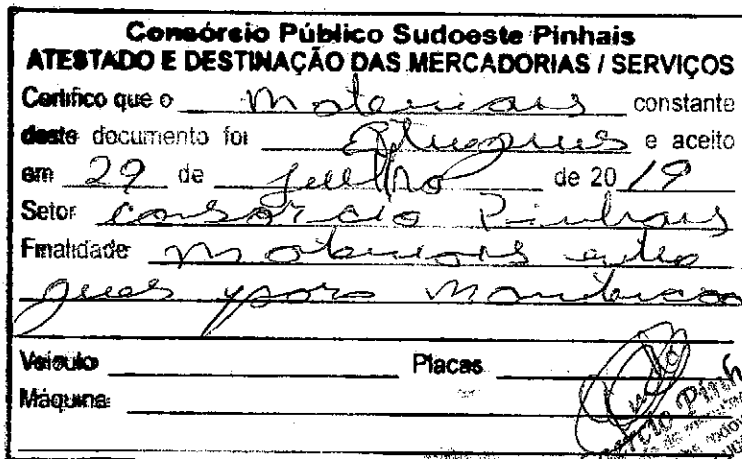 Consórcio Público Sudoeste Pinhais
ATESTADO E DESTINAÇÃO DAS MERCADORIAS / SERVIÇOS
Certifico que o Materiais constante
deste documento foi Entregues e aceito
em 29 de julho de 2019
Setor Consórcio Pinhais
Finalidade Materiais entre
gues para Manutencao
Veículo Placas
Máquina